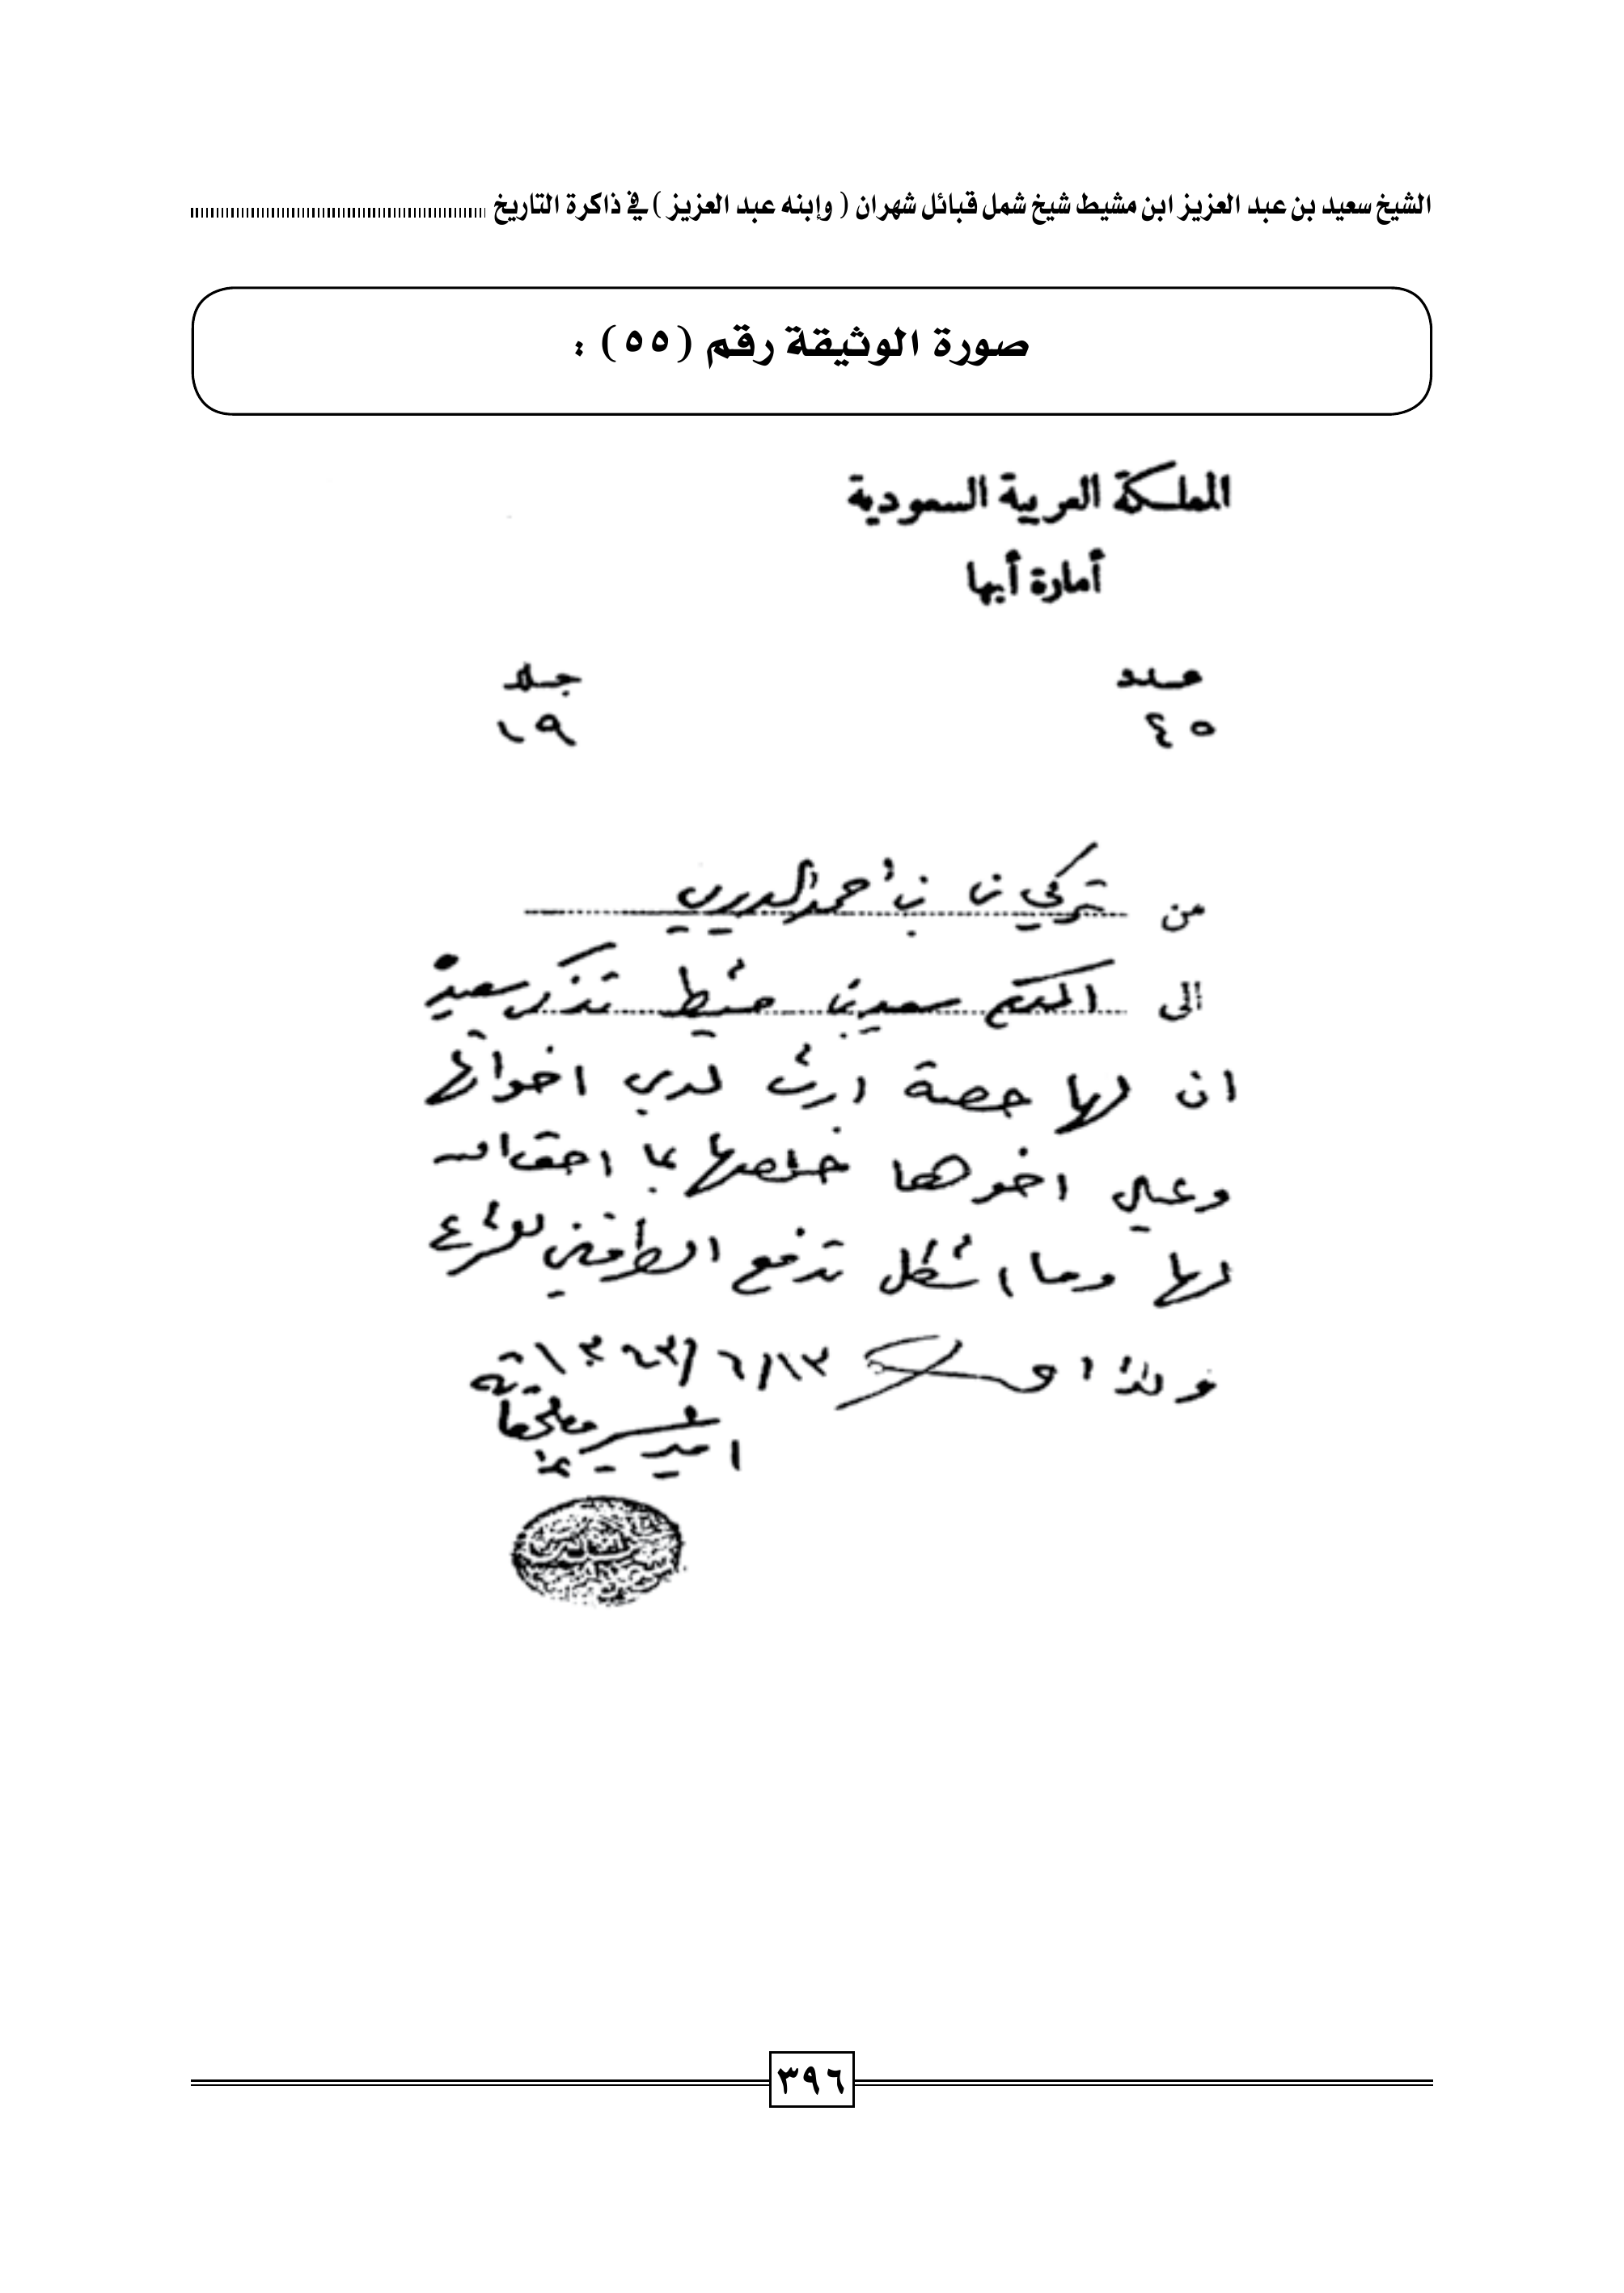 الشيخ سعيد بن عبد العزيز ابن مشيط شيخ شمل قبائل شهران ( وإبنه عبد العزيز ) في ذاكرة التاريخ
صورة الوثيقة رقم (٥٥) :
المملكة العربية السعودية
أمارة أبها
عدد جلد
٤٥ ١٩
من تركي بن احمد السديري
الى المكرم سعيد بن مشيط تذكر سعيده
ان لها حصة ارث لدي اخوانها
وعلي اخوها خلصها بما احق الله
لها وما اشكل تدفع الطرفين للشرع
ولذا ١٣/٦/١٣٦٣
امير عسير وملحقاته
٣٩٦